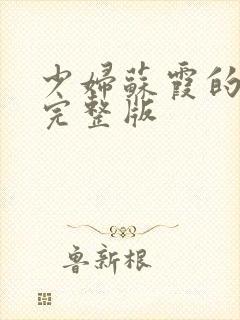 少婦蘇霞的
完整版
魯新根